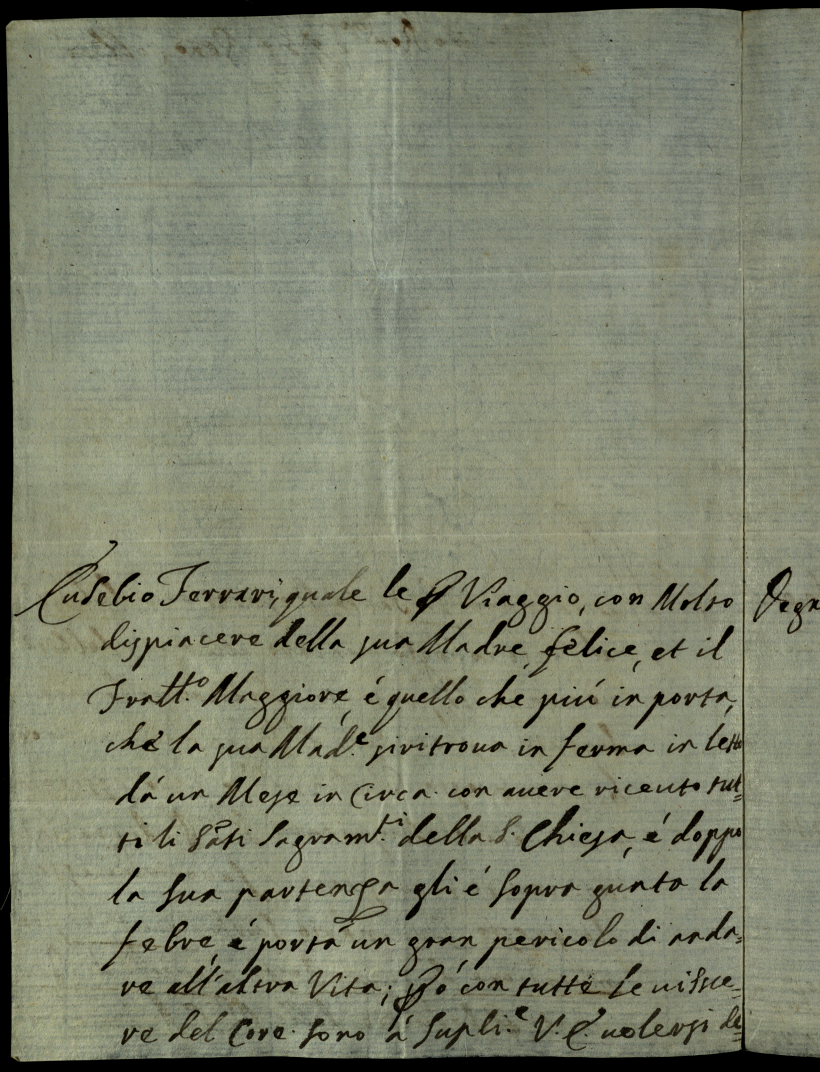 Eusebio Ferrari, quale le per Viaggio, con Molto
dispiacere della sua Madre, felice, et il
Fratt.o Maggiore, é quello ché piú in porta,
ché la sua Mad.e si ritroua in ferma in letto
dá un Mese in Circa con auere riceuto tut=
ti li S.ti Sagram.ti della S. Chiesa, é doppo
la sua partenza gli é sopra gunta la
febre, é portá un gran pericolo di anda=
re all'altra Vita; però con tutte le uisce=
re del Core sono á Supli.e V. E. uolersi de=
Degn